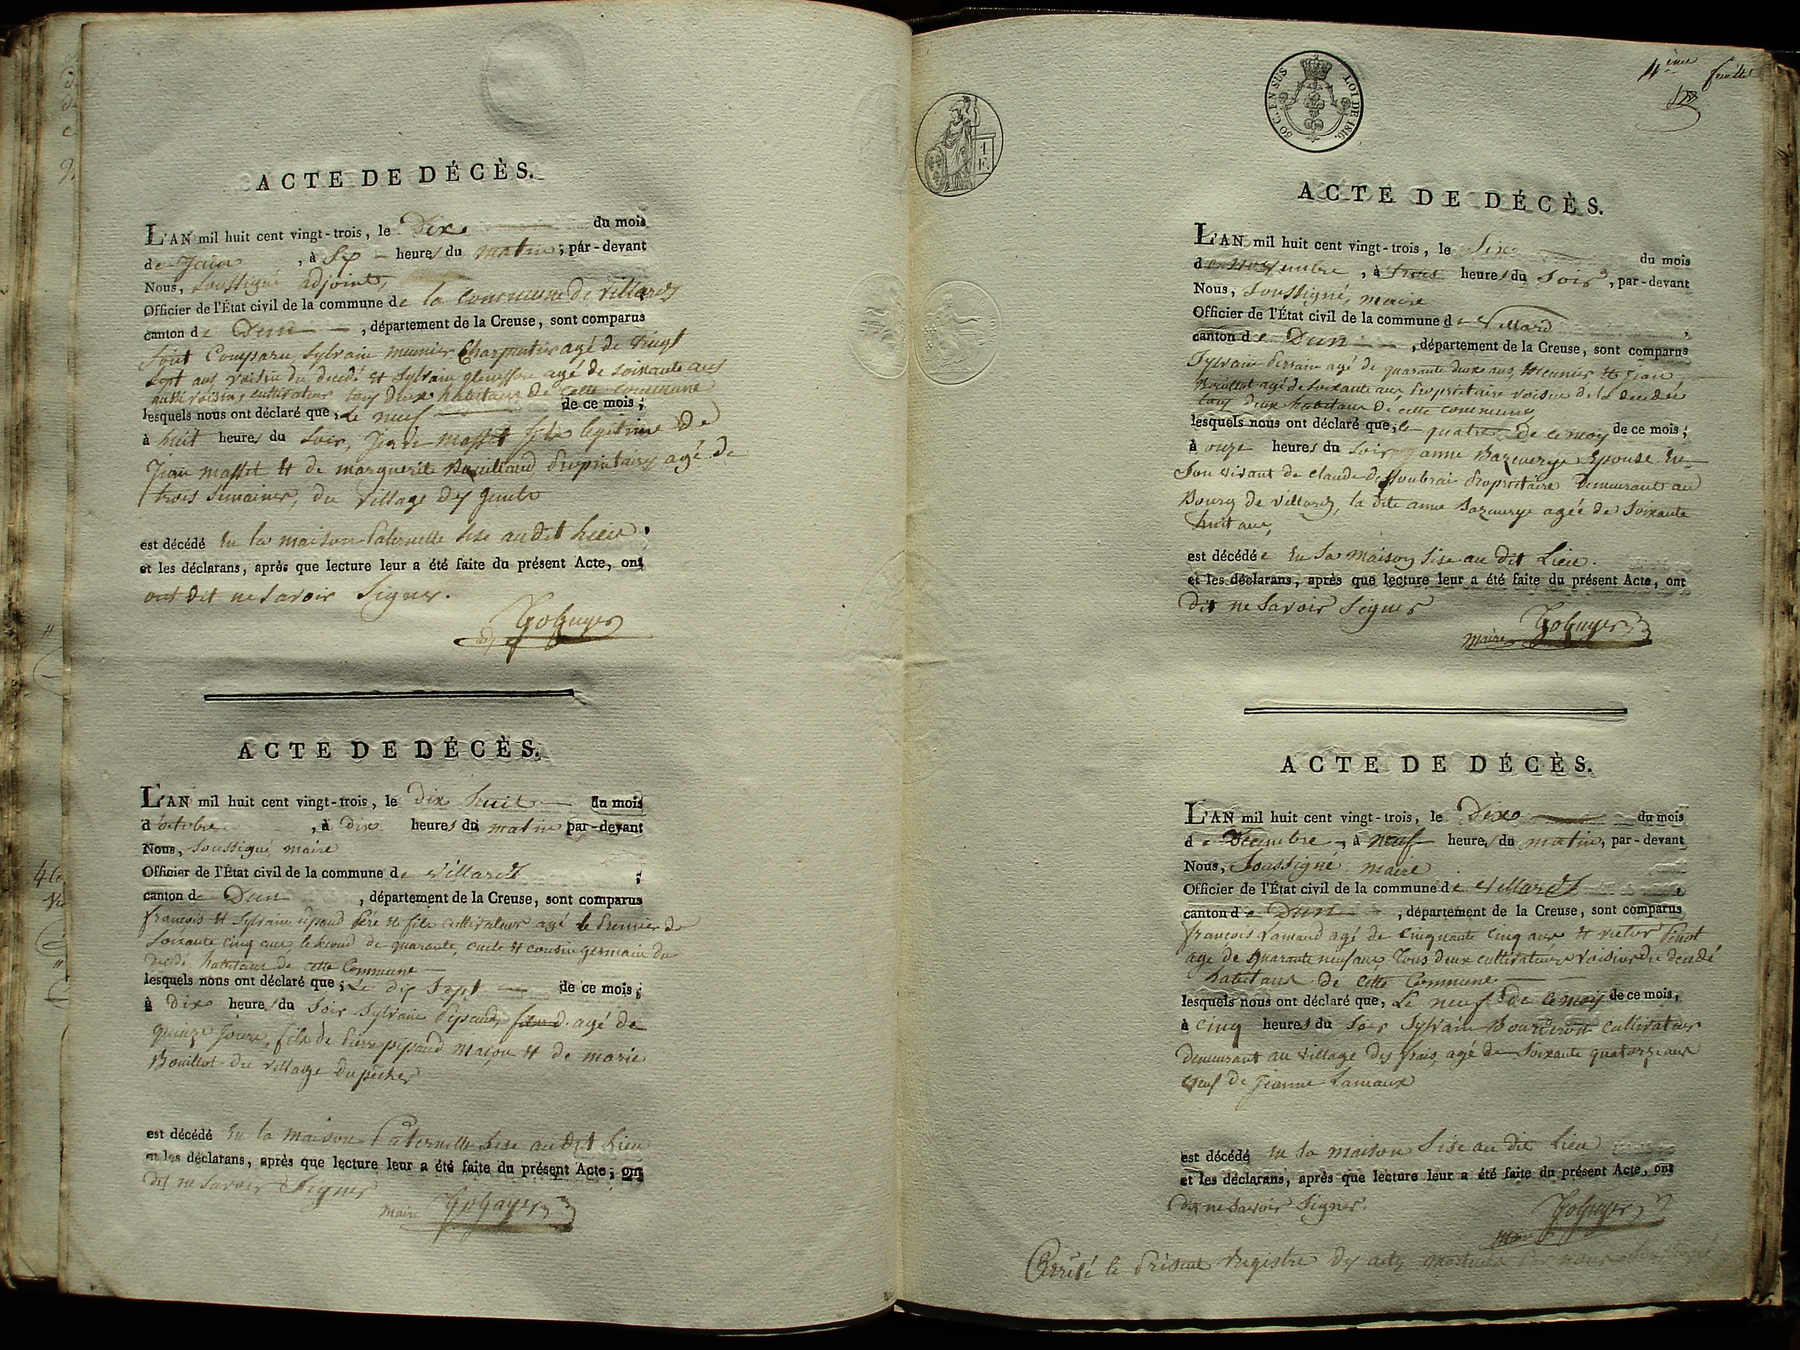 ACTE DE DÉCÈS.
L'AN mil huit cent vingt-trois, le Dix du mois
de Juin, à Six heures du matin; par-devant
Nous, Soussigné adjoint,
Officier de l'État civil de la commune de la commune de Villards
canton de Dun, département de la Creuse, sont comparus
Sont Comparu Sylvain munier Charpentier agé de vingt
Sept ans voisin du décédé et Sylvain agé de soixante ans
aussi voisin, cultivateur tous deux habitans de cette commune
lesquels nous ont déclaré que, Le neuf de ce mois;
à huit heures du Soir, Jean massit fils légitime de
Jean massit et de marguerite Propriétaires agé de
trois semaines, du village des
est décédé En la maison Paternelle Sise audit Lieu.
et les déclarans, après que lecture leur a été faite du présent Acte, ont
ont dit ne Savoir Signer.
adj
ACTE DE DÉCÈS.
L'AN mil huit cent vingt-trois, le dix huit du mois
d'octobre, à dix heures du matin par-devant
Nous, Soussigné maire
Officier de l'État civil de la commune de Villards;
canton de Dun, département de la Creuse, sont comparus
françois et Sylvain pipaud Père et fils cultivateurs agé le Premier de
Soixante cinq ans le second de quarante, oncle et cousin germain du
décédé habitans de cette Commune
lesquels nous ont déclaré que, Le dix Sept de ce mois;
à dix heures du Soir Sylvain pipaud, agé de
quinze Jours, fils de Pierre pipaud maçon et de marie
Bouillot du village du pêcher
est décédé En la maison Paternelle Sise audit Lieu
et les déclarans, après que lecture leur a été faite du présent Acte; ont
dit ne Savoir Signer
maire
4ème feuillet
50 C. EN SUS LOI DE 1816.
1 F.
ACTE DE DÉCÈS.
L'AN mil huit cent vingt-trois, le Six du mois
de Novembre, à trois heures du Soir, par-devant
Nous, Soussigné, maire
Officier de l'État civil de la commune de Villard,
canton de Dun, département de la Creuse, sont comparus
Sylvain Perrain agé de quarante deux ans, Meunier et Jean
Bouillot agé de soixante ans, Propriétaire voisins de la décédée
tous deux habitans de cette commune
lesquels nous ont déclaré que, le quatre de ce mois de ce mois;
à onze heures du Soir anne Epouse En
Son vivant de Claude Propriétaire Demeurant au
Bourg de Villards, la dite anne agée de Soixante
huit ans,
est décédée En Sa maison Sise au dit Lieu.
et les déclarans, après que lecture leur a été faite du présent Acte, ont
Dit ne Savoir Signer
maire
ACTE DE DÉCÈS.
L'AN mil huit cent vingt-trois, le Dix du mois
de Décembre, à neuf heures du matin, par-devant
Nous, Soussigné maire
Officier de l'État civil de la commune de Villards,
canton de Dun, département de la Creuse, sont comparus
François Lamaud agé de Cinquante Cinq ans et victor Pinot
agé de Quarante neuf ans Tous deux cultivateurs voisins du décédé
habitans de cette Commune
lesquels nous ont déclaré que, Le neuf de ce mois de ce mois,
à cinq heures du Soir Sylvain Bourliron Cultivateur
Demeurant au village des frais, agé de Soixante quatorze ans
veuf de Jeanne Lamaux
est décédé En Sa maison Sise au dit Lieu
et les déclarans, après que lecture leur a été faite du présent Acte, ont
Dit ne Savoir Signer.
maire
Arrêté le Présent Registre des actes